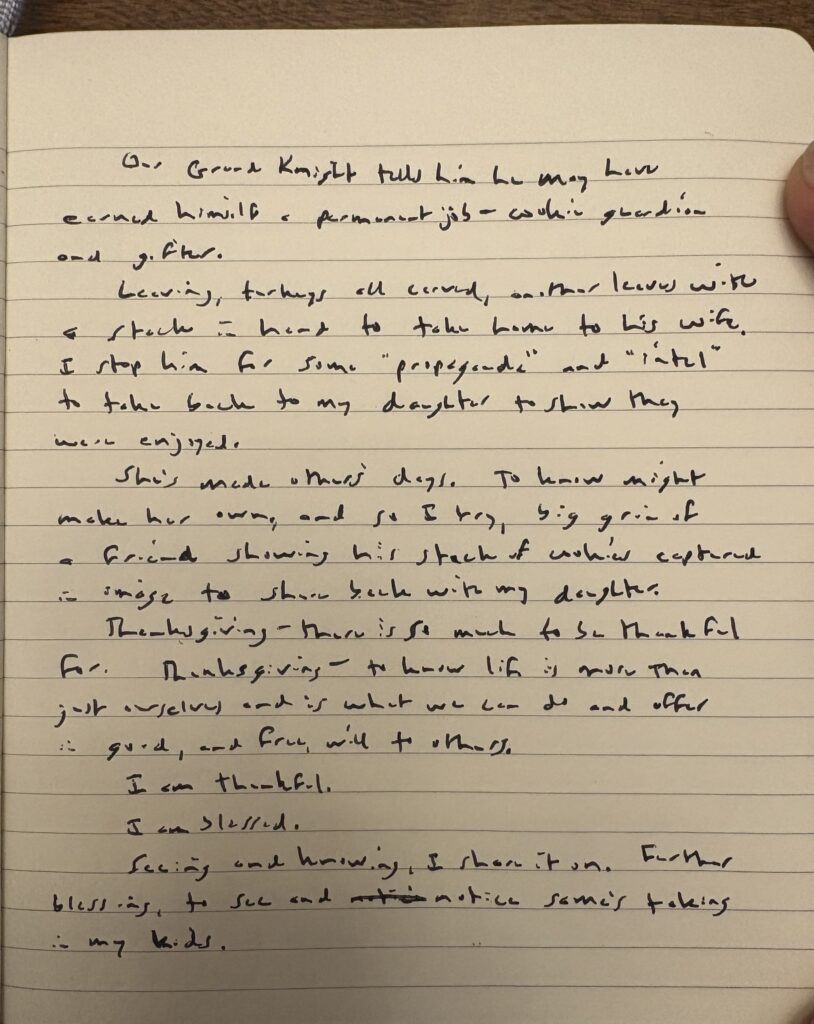 Our Grand Knight tells him he may have
earned himself a permanent job - cookie guardian
and gifter.
Leaving, turkeys all carved, another leaves with
a stack in hand to take home to his wife.
I stop him for some "propaganda" and "intel"
to take back to my daughter to show they
were enjoyed.
She's made others' days. To know might
make her own, and so I try, big grin of
a friend showing his stack of cookies captured
in image to share back with my daughter.
Thanksgiving - there is so much to be thankful
for. Thanksgiving - to know life is more than
just ourselves and is what we can do and offer
in good, and free, will to others.
I am thankful.
I am blessed.
Seeing and knowing, I share it on. Further
blessing, to see and notice same's taking
in my kids.